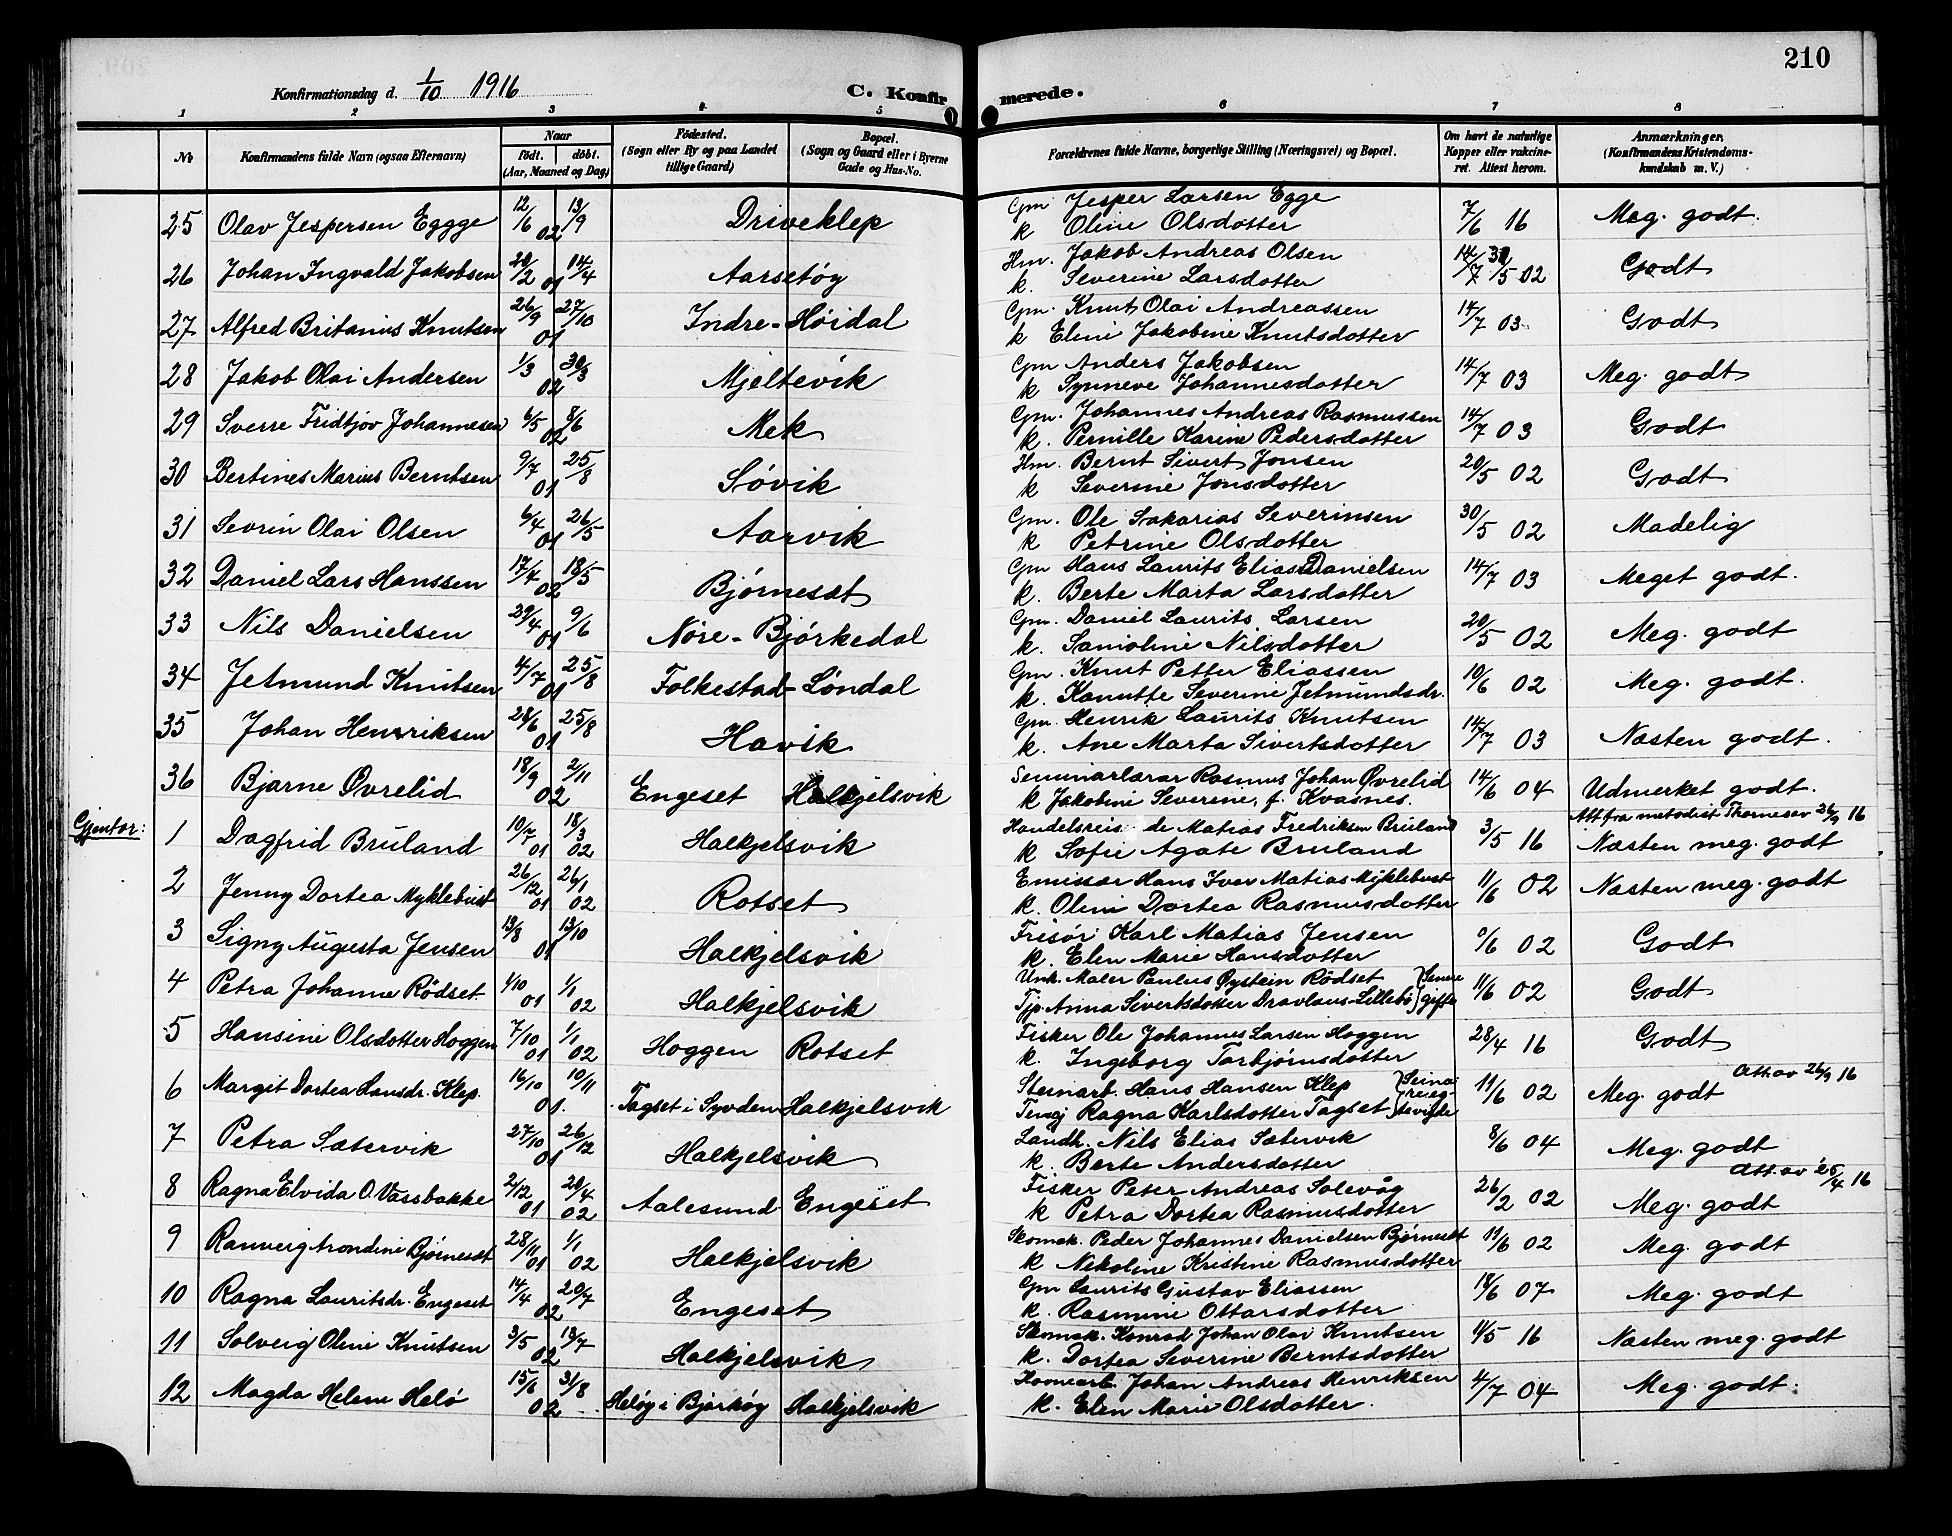 210
Konfirmationsdag d. 1/10 1916 C. Konfirmerede.
1 2 3 4 5 6 7 8
No
Konfirmandens fulde Navn (ogsaa Efternavn)
Naar født. døbt. (Aar, Maaned og Dag)
Fødested. (Sogn eller By og paa Landet tillige Gaard)
Bopæl. (Sogn og Gaard eller i Byerne Gade og Hus-No.
Forældrenes fulde Navne, borgerlige Stilling (Næringsvei) og Bopæl.
Om havt de naturlige Kopper eller vakcineret. Attest herom.
Anmærkninger. (Konfirmandens Kristendomskundskab m. V.)
25 Olav Jespersen Eggge 12/6 02 13/9 Driveklep Gm Jesper Larsen Egge k Oline Olsdotter 7/6 16 Meg. godt.
26 Johan Ingvald Jakobsen 20/2 01 14/4 Aarsetøy Hm. Jakob Andreas Olsen k. Severine Larsdotter 02 Godt
27 Alfred Britanius Knutsen 26/9 01 27/10 Indre-Høidal Gm. Knut Olai Andreassen k Elini Jakobine Knutsdotter 14/7 03 Godt
28 Jakob Olai Andersen 1/3 02 30/3 Mjeltevik Gm Anders Jakobsen k Synneve Johannesdotter 14/7 03 Meg. godt
29 Sverre Fridtjov Johannesen 6/5 02 8/6 Mek Gm. Johannes Andreas Rasmussen k. Pernille Karine Pedersdotter 14/7 03 Godt
30 Bertines Marius Berntsen 9/7 01 25/8 Søvik Hm. Bernt Sivert Jonsen k Severine Jonsdotter 20/5 02 Godt
31 Sevrin Olai Olsen 6/4 01 26/5 Aarvik Gm. Ole Sakarias Severinsen k Petrine Olsdotter 30/5 02 Madelig
32 Daniel Lars Hanssen 17/4 02 18/5 Bjørneset Gm Hans Laurits Elias Danielsen k. Berte Marta Larsdotter 14/7 03 Meget godt.
33 Nils Danielsen 29/4 01 9/6 Nøre-Bjørkedal Gm. Daniel Laurits Larsen k. Saniolini Nilsdotter 20/5 02 Meg. godt
34 Jetmund Knutsen 4/7 01 25/8 Folkestad-Løndal Gm. Knut Petter Eliassen k. Kanutte Severine Jetmundsdr. 10/6 02 Meg. godt.
35 Johan Henriksen 28/6 01 25/8 Havik Gm. Henrik Laurits Knutsen k. Ane Marta Sivertsdotter 14/7 03 Næsten godt.
36 Bjarne Øvrelid 18/9 02 2/11 Engeset Halkjelsvik Seminarlærar Rasmus Johan Øvrelid k Jakobine Severine, f. Kvasnes. 14/6 04 Udmerket godt.
Gjentor:
1 Dagfrid Bruland 10/7 01 18/3 02 Halkjelsvik Handelsreis. de Matias Fredriksen Bruland k Sofie Agate Bruland 3/5 16 Att fra metodist Thornesøv 26/9 16 Næsten meg. godt
2 Jenny Dortea Myklebust 26/12 01 26/1 02 Rotset Emissær Hans Iver Matias Myklebust k. Olini Dortea Rasmusdotter 11/6 02 Næsten meg. godt
3 Signy Augusta Jensen 13/8 01 13/10 Halkjelsvik Frisør Karl Matias Jensen k. Elen Marie Hansdotter 02 Godt
4 Petra Johanne Rødset 1/10 01 1/1 02 Halkjelsvik Unk. Maler Paulus Øystein Rødset Tjp. Anna Sivertsdotter Dravlaus-Lillebø } Senere gifte 11/6 02 Godt
5 Hansine Olsdotter Hoggen 7/10 01 1/1 02 Hoggen Rotset Fisker Ole Johannes Larsen Hoggen k. Ingeborg Torbjørnsdotter 28/4 16 Godt
6 Margit Dortea Hansdr. Klep. 16/10 01. 10/11 Tagset i Syvden Halkjelsvik Steinarb. Hans Hansen Klep Ragna Karlsdotter Tagset 11/6 02 Att. av 26/9 16 Meg. godt
7 Petra Sætervik 27/10 01 26/12 Halkjelsvik Landh. Nils Elias Sætervik k. Berte Andersdotter 8/6 04 Meg. godt
8 Ragna Elvida O. Vassbakke 2/12 01 20/4 02 Aalesund Engeset Fisker Peter Andreas Solevåg k Petra Dortea Rasmusdotter 26/2 02 Att. av 25/4 16 Meg. godt
9 Ranveig Arondini Bjørneset 28/11 01 1/1 02 Halkjelsvik Skomak. Peder Johannes Danielsen Bjørneset k Nekoline Kristine Rasmusdotter 11/6 02 Meg. godt
10 Ragna Lauritsdr. Engeset 14/4 02 20/7 Engeset Gm Laurits Gustav Eliassen k. Rasmine Ottarsdotter 18/6 07 Meg. godt
11 Solveig Oline Knutsen 3/5 02 13/7 Halkjelsvik Skomak. Konrad Johan Olai Knutsen k. Dortea Severine Berntsdotter 16 Næsten meg. godt
12 Magda Helene Helø 15/6 02 31/8 Heløy i Bjarkøy Halkjelsvik Johan Andreas Henriksen k. Elen Marie Olsdotter. 4/7 04 Meg. godt.